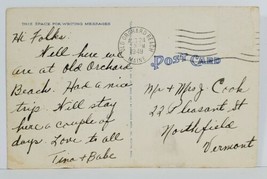 THIS SPACE FOR WRITING MESSAGES
Hi Folks.
Well here we
are at old Orchard
Beach. Had a nice
trip. Will stay
here a couple of
days. Love to all
Tina + Babe
OLD ORCHARD BEACH
MAINE
POST CARD
Mr + Mrs J. Cook
22 Pleasant St
Northfield
Vermont